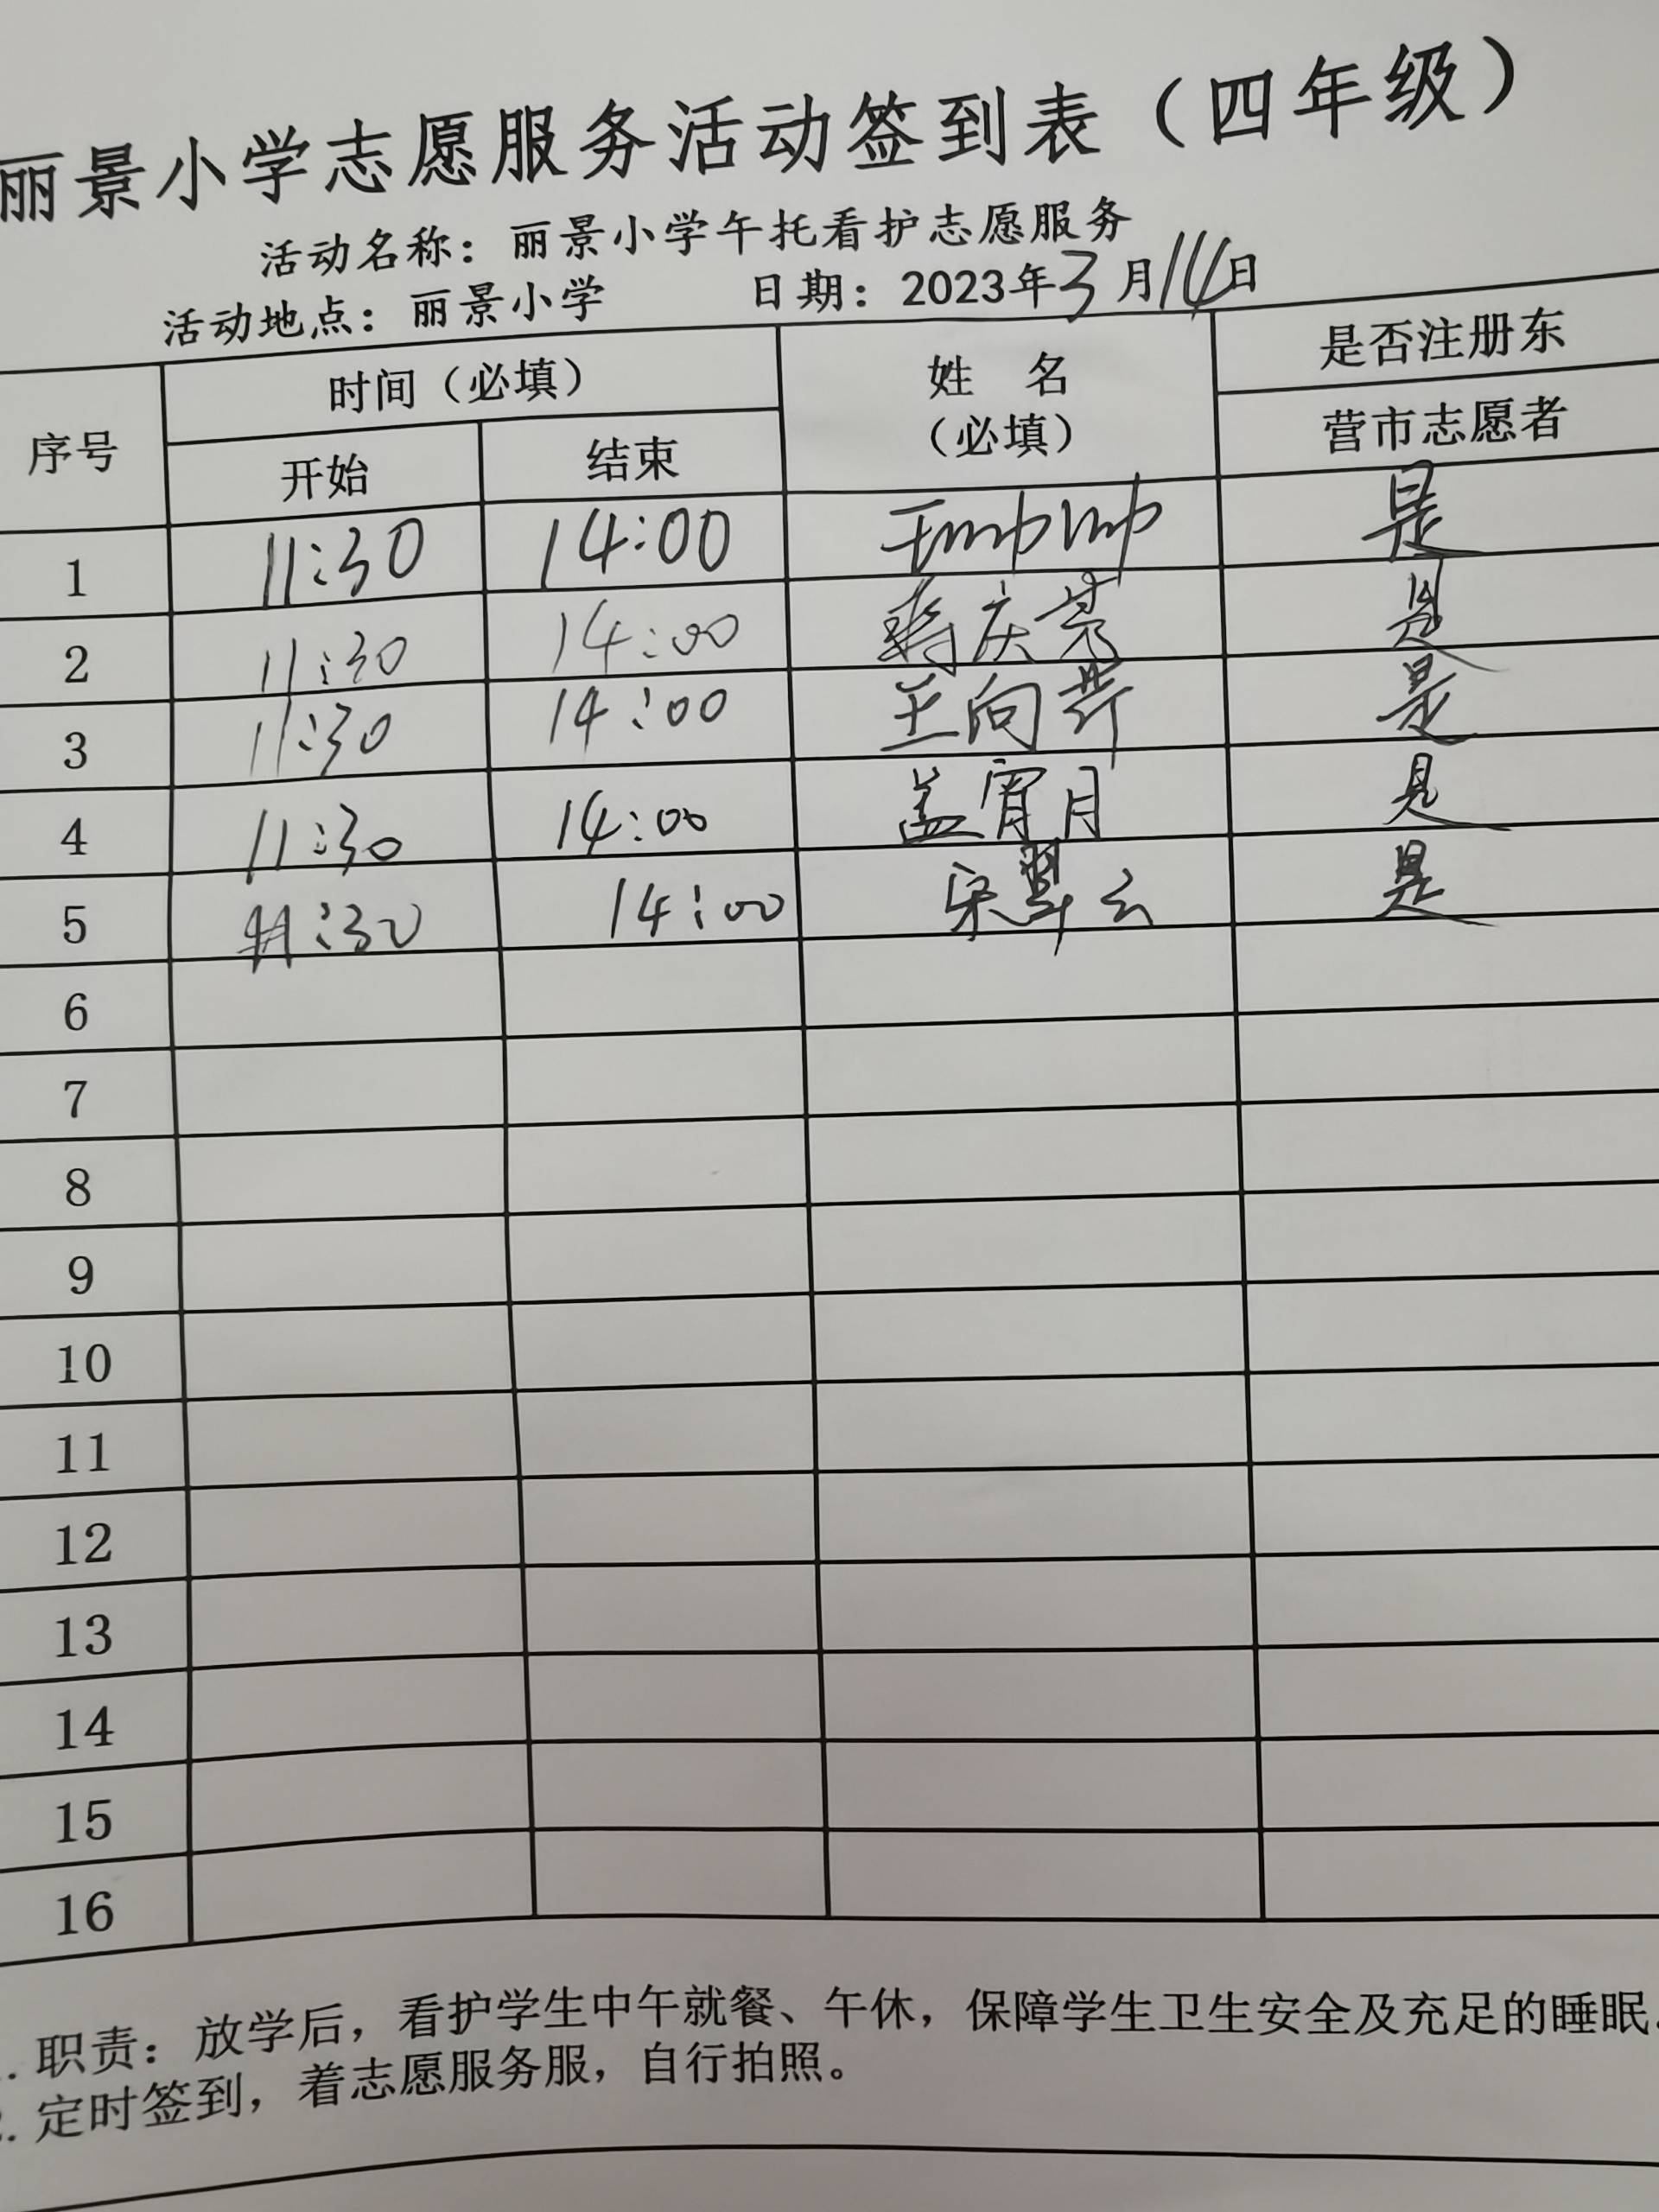 丽景小学志愿服务活动签到表（四年级）
活动名称：丽景小学午托看护志愿服务
活动地点：丽景小学 日期：2023年3月14日
序号 时间（必填） 姓 名（必填） 是否注册东营市志愿者
开始 结束
1 11:30 14:00 是
2 11:30 14:00 蒋庆芳 是
3 11:30 14:00 王向 是
4 11:30 14:00 盖宵月 是
5 11:30 14:00 宋翠云 是
6
7
8
9
10
11
12
13
14
15
16
. 职责：放学后，看护学生中午就餐、午休，保障学生卫生安全及充足的睡眠
. 定时签到，着志愿服务服，自行拍照。